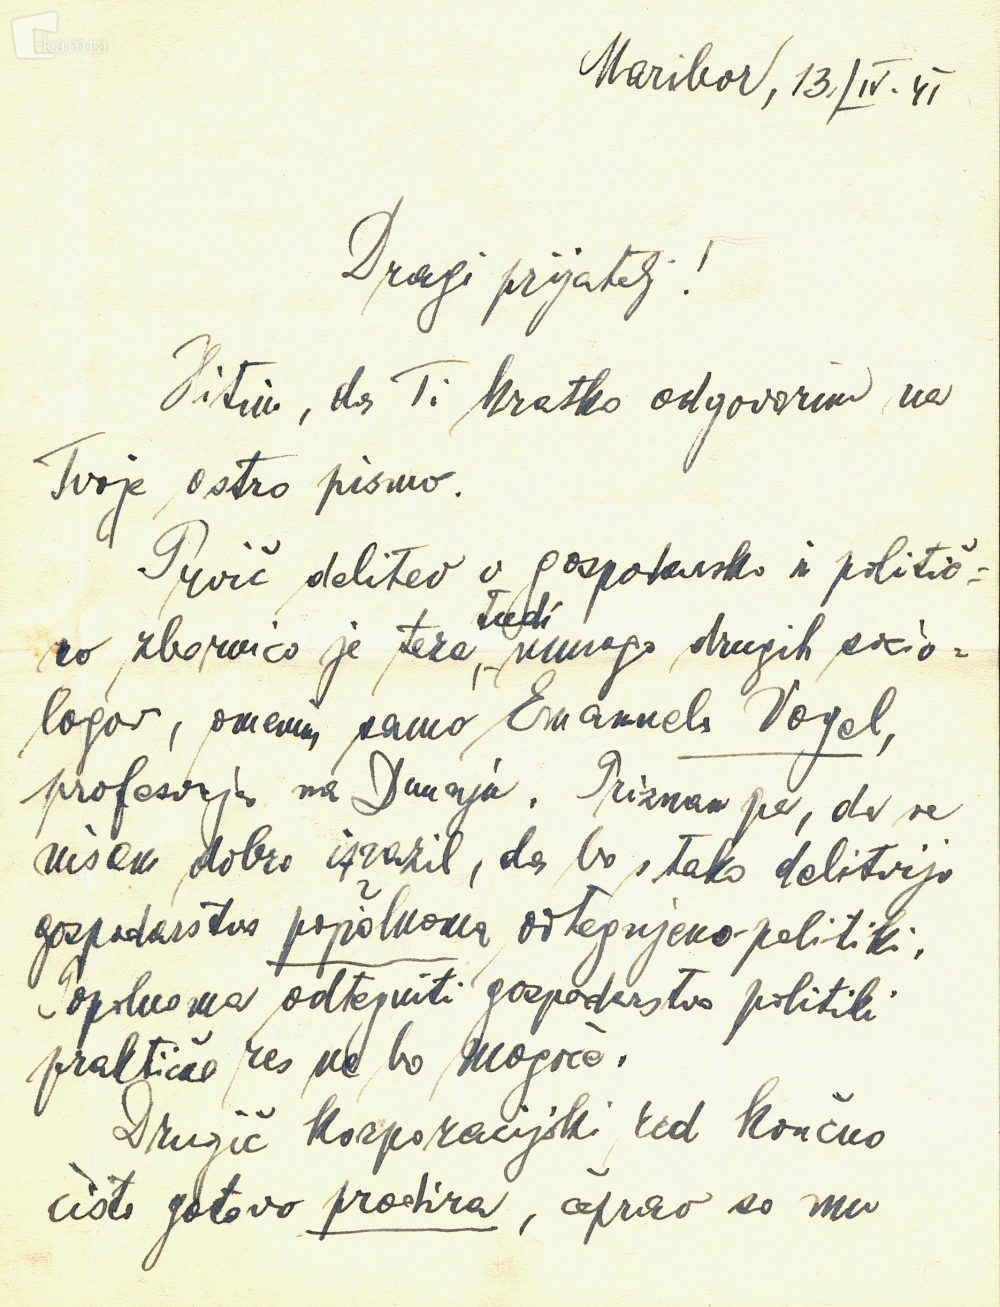 kamra
Maribor, 13./IV. 41
Dragi prijatelj!
Hitim, da Ti kratko odgovorim na
Tvoje ostro pismo.
Prvič delitev v gospodarsko in politič=
no zbornico je teza, tudi mnogo drugih socio=
logov, omenim samo Emanuela Vogel,
profesorja na Dunaju. Priznam pa, da se
nisem dobro izrazil, da bo s tako delitvijo
gospodarstvo popolnoma odtegnjeno politiki.
Popolnoma odtegniti gospodarstvo politiki
praktično res ne bo mogoče.
Drugič korporacijski red končno
čisto gotovo prodira, čeprav so mu